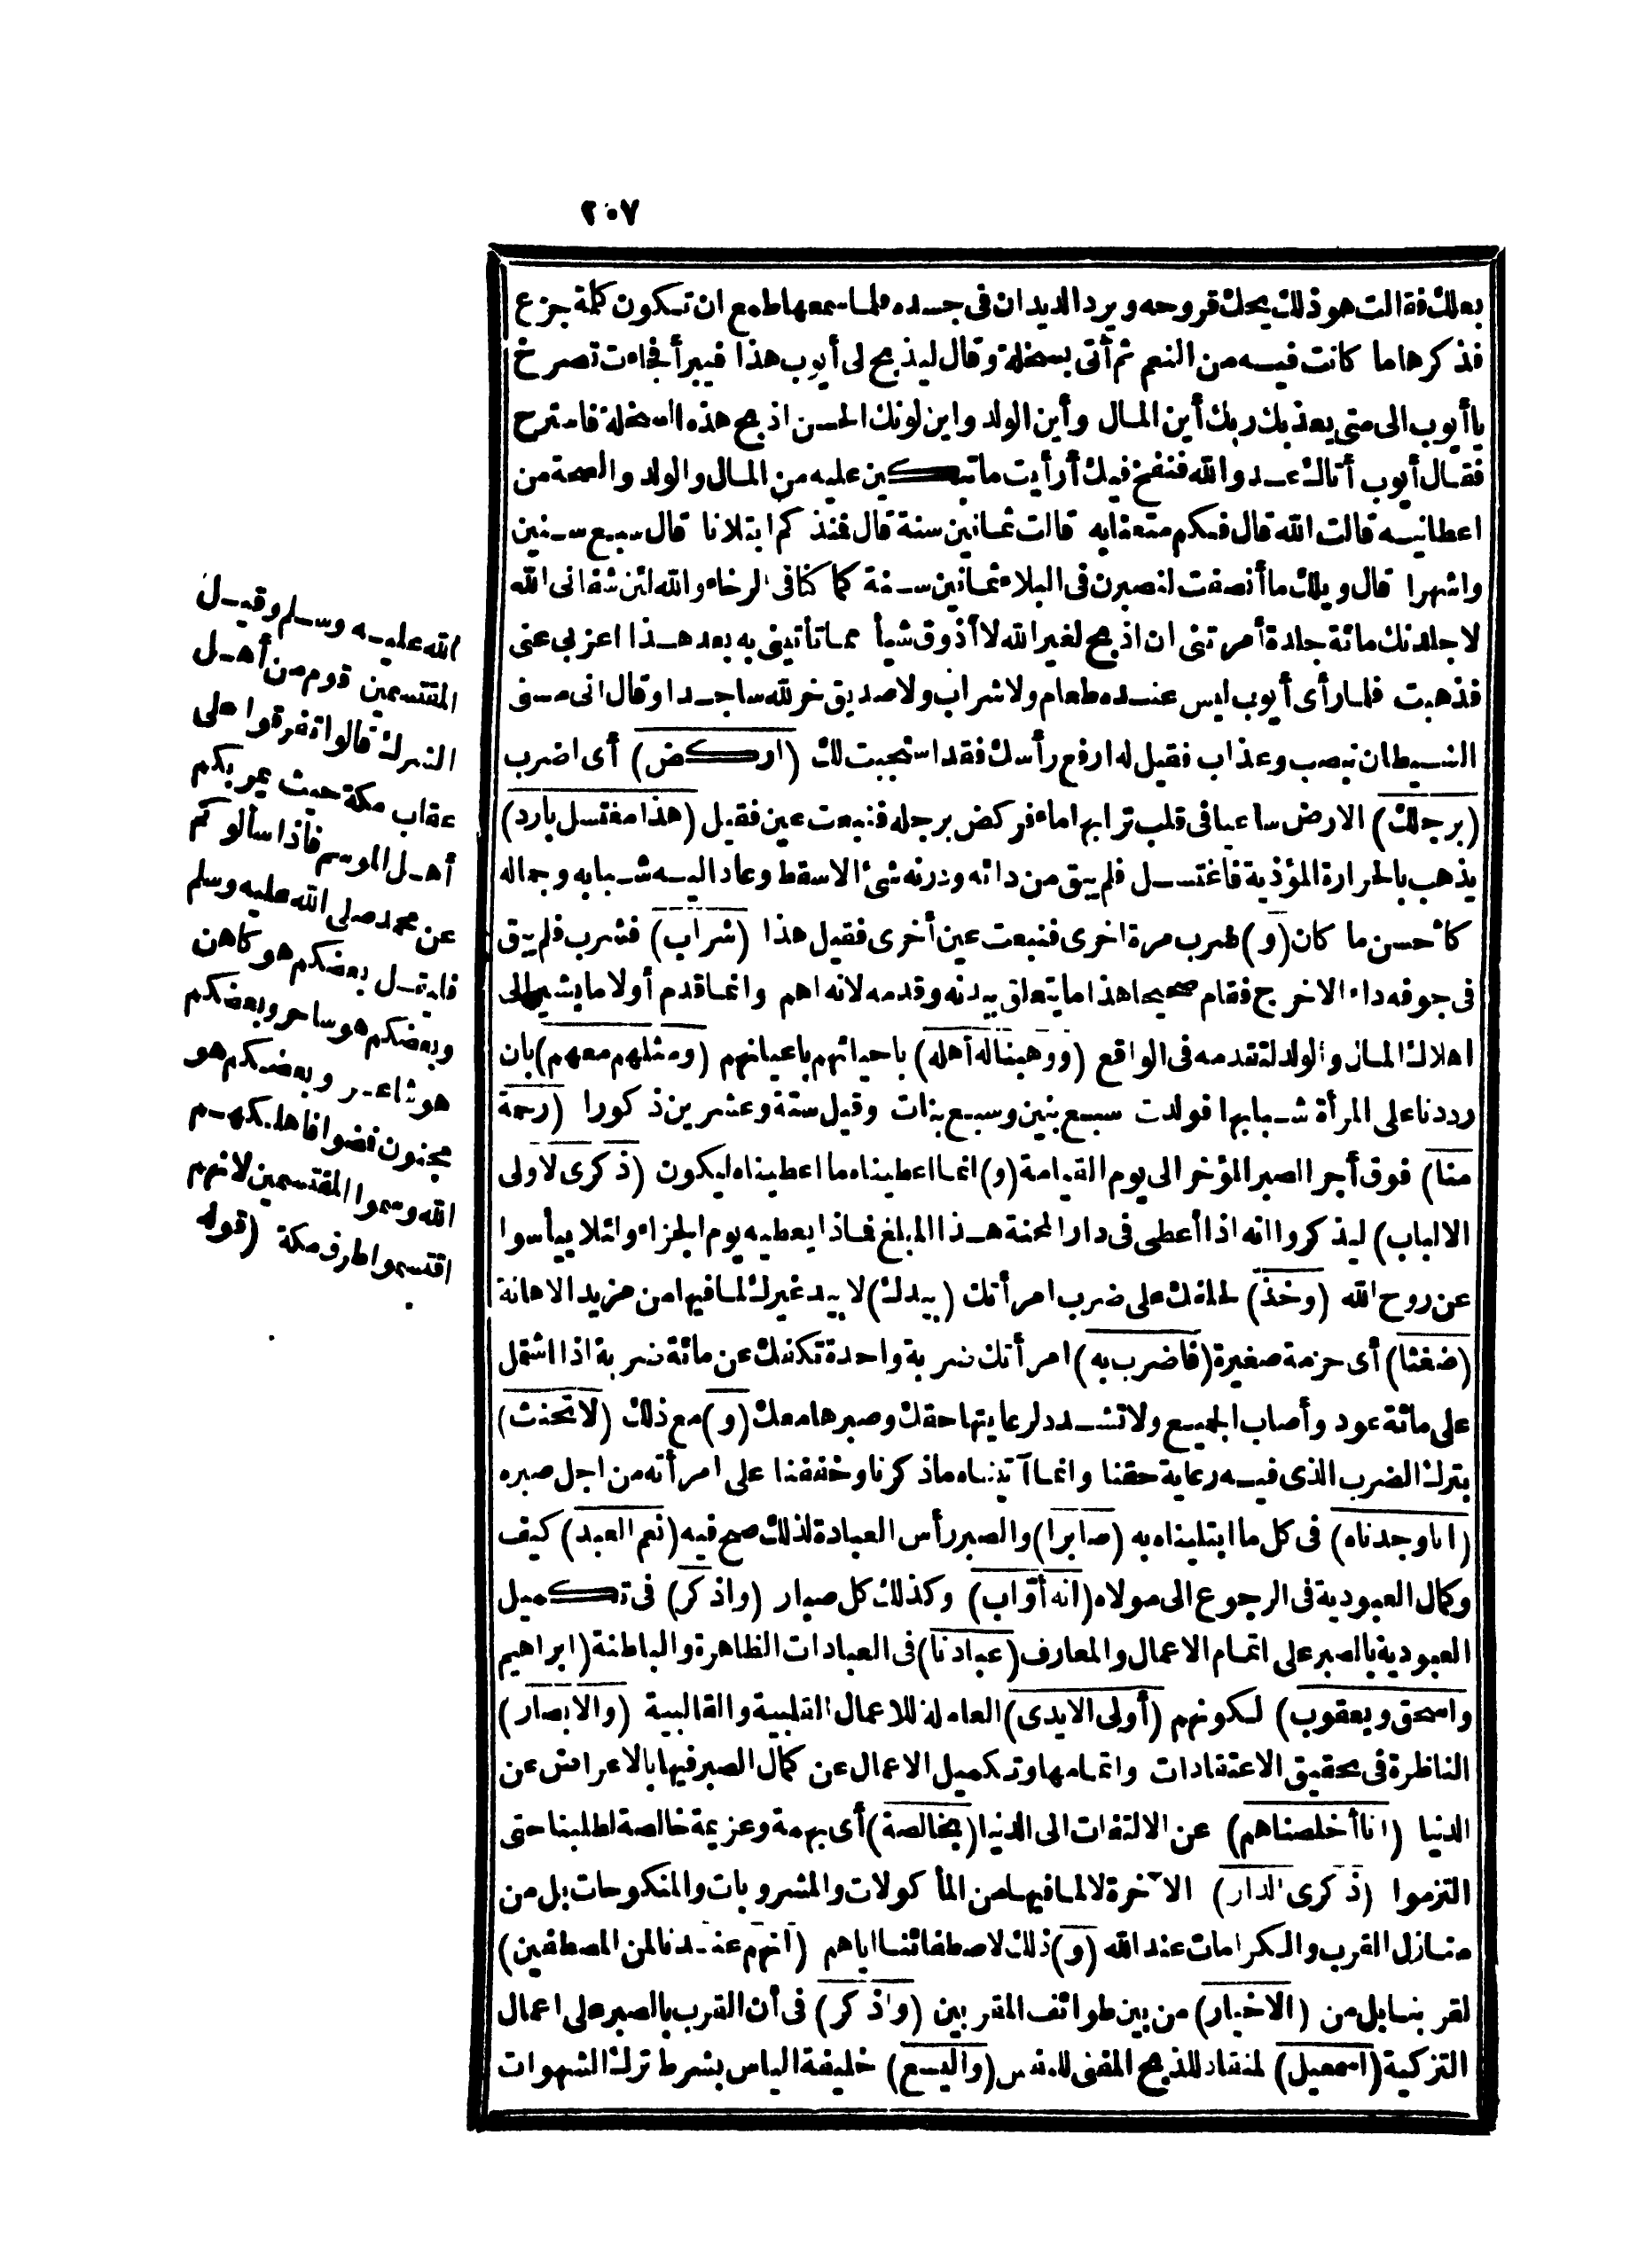 ٢٠٧
بعلك فقالت هو ذلك يحك قروحه ويرد الديدان فى جسده فلما سمعها طمع ان تكون كلمة جزع
فذكرها ما كانت فيه من النعم ثم أتى بسخلة وقال ليذبح لى أيوب هذا فيبرأ فجاءت تصرخ
يا أيوب الى متى يعذبك ربك أين المال وأين الولد واين لونك الحسن اذبح هذه السخلة فاسترح
فقال أيوب أتاك عدو الله فنفخ فيك أرأيت ما تبكين عليه من المال والولد والصحة من
اعطانيه قالت الله قال فكم متعنا به قالت ثمانين سنة قال فمنذ كم ابتلانا قال سبع سنين
واشهرا قال ويلك ما أنصفت لنصبرن فى البلاء ثمانين سنة كما كنا فى الرخاء والله لئن شفانى الله
لاجلدنك مائة جلدة أمرتنى ان اذبح لغير الله لا أذوق شيأ مما تأتينى به بعد هذا اعزبى عنى
فذهبت فلما رأى أيوب ليس عنده طعام ولا شراب ولا صديق خر لله ساجدا وقال انى مسنى
الشيطان بنصب وعذاب فقيل له ارفع رأسك فقد استجيبت لك (اركض) أى اضرب
(برجلك) الارض ساعيا فى قلب ترابها ماء فركض برجله فنبعت عين فقيل (هذا مغتسل بارد)
يذهب بالحرارة المؤذية فاغتسل فلم يبق من دائه ودرنه شئ الا سقط وعاد اليه شبابه وجماله
كأحسن ما كان (و) ضرب مرة اخرى فنبعت عين أخرى فقيل هذا (شراب) فشرب فلم يبق
فى جوفه داء الا خرج فقام صحيحا هذا ما يتعلق ببدنه وقدمه لانه اهم وانما قدم أولا ما يشير الى
اهلاك المال والولد لتقدمه فى الواقع (ووهبنا له أهله) باحيائهم باعيانهم (ومثلهم معهم) بان
رددنا على المرأة شبابها فولدت سبع بنين وسبع بنات وقيل ستة وعشرين ذكورا (رحمة
منا) فوق أجر الصبر المؤخر الى يوم القيامة (و) انما اعطيناه ما اعطيناه ليكون (ذكرى لاولى
الالباب) ليذكروا انه اذا أعطى فى دار المحنة هذا المبلغ فماذا يعطيه يوم الجزاء ولئلا ييأسوا
عن روح الله (وخذ) لحلفك على ضرب امرأتك (بيدك) لا بيد غيرك لما فيها من مزيد الاهانة
(ضغثا) أى حزمة صغيرة (فاضرب به) امرأتك ضربة واحدة تكفك عن مائة ضربة اذا اشتمل
على مائة عود وأصاب الجميع ولا تشدد لرعايتها حقك وصبرها معك (و) مع ذلك (لا تحنث)
بترك الضرب الذى فيه رعاية حقنا وانما آتيناه ما ذكرنا وخففنا على امرأته من اجل صبره
(انا وجدناه) فى كل ما ابتليناه به (صابرا) والصبر رأس العبادة لذلك صح فيه (نعم العبد) كيف
وكمال العبودية فى الرجوع الى مولاه (انه أوّاب) وكذلك كل صبار (واذكر) فى تكميل
العبودية بالصبر على اتمام الاعمال والمعارف (عبادنا) فى العبادات الظاهرة والباطنة (ابراهيم
واسحق ويعقوب) لكونهم (أولى الايدى) العاملة للاعمال القلبية والقالبية (والابصار)
الناظرة فى تحقيق الاعتقادات واتمامها وتكميل الاعمال عن كمال الصبر فيها بالاعراض عن
الدنيا (انا أخلصناهم) عن الالتفات الى الدنيا (بخالصة) أى بهمة وعزيمة خالصة لطلبنا حتى
التزموا (ذكرى الدار) الآخرة لا لما فيها من المأكولات والمشروبات والمنكوحات بل من
منازل القرب والكرامات عند الله (و) ذلك لاصطفائنا اياهم (انهم عندنا لمن المصطفين)
لقربنا بل من (الاخيار) من بين طوائف المقربين (واذكر) فى أن القرب بالصبر على اعمال
التزكية (اسمعيل) لمنقاد للذبح المفنى للنفس (واليسع) خليفة الياس بشرط ترك الشهوات
الله عليه وسلم وقيل
المقتسمين قوم من أهل
الشرك قالوا تفرقوا على
عقاب مكة حيث يمر بكم
أهل الموسم فاذا سألوكم
عن محمد صلى الله عليه وسلم
فليقل بعضكم هو كاهن
وبعضكم هو ساحر وبعضكم
هو شاعر وبعضكم هو
مجنون فضوا فاهلكهم
الله وسموا المقتسمين لانهم
اقتسموا طرف مكة (قوله